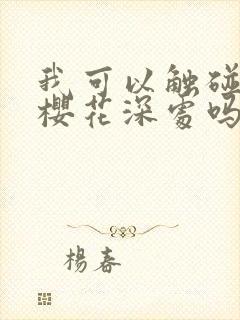 我可以触碰
樱花深处吗
杨春